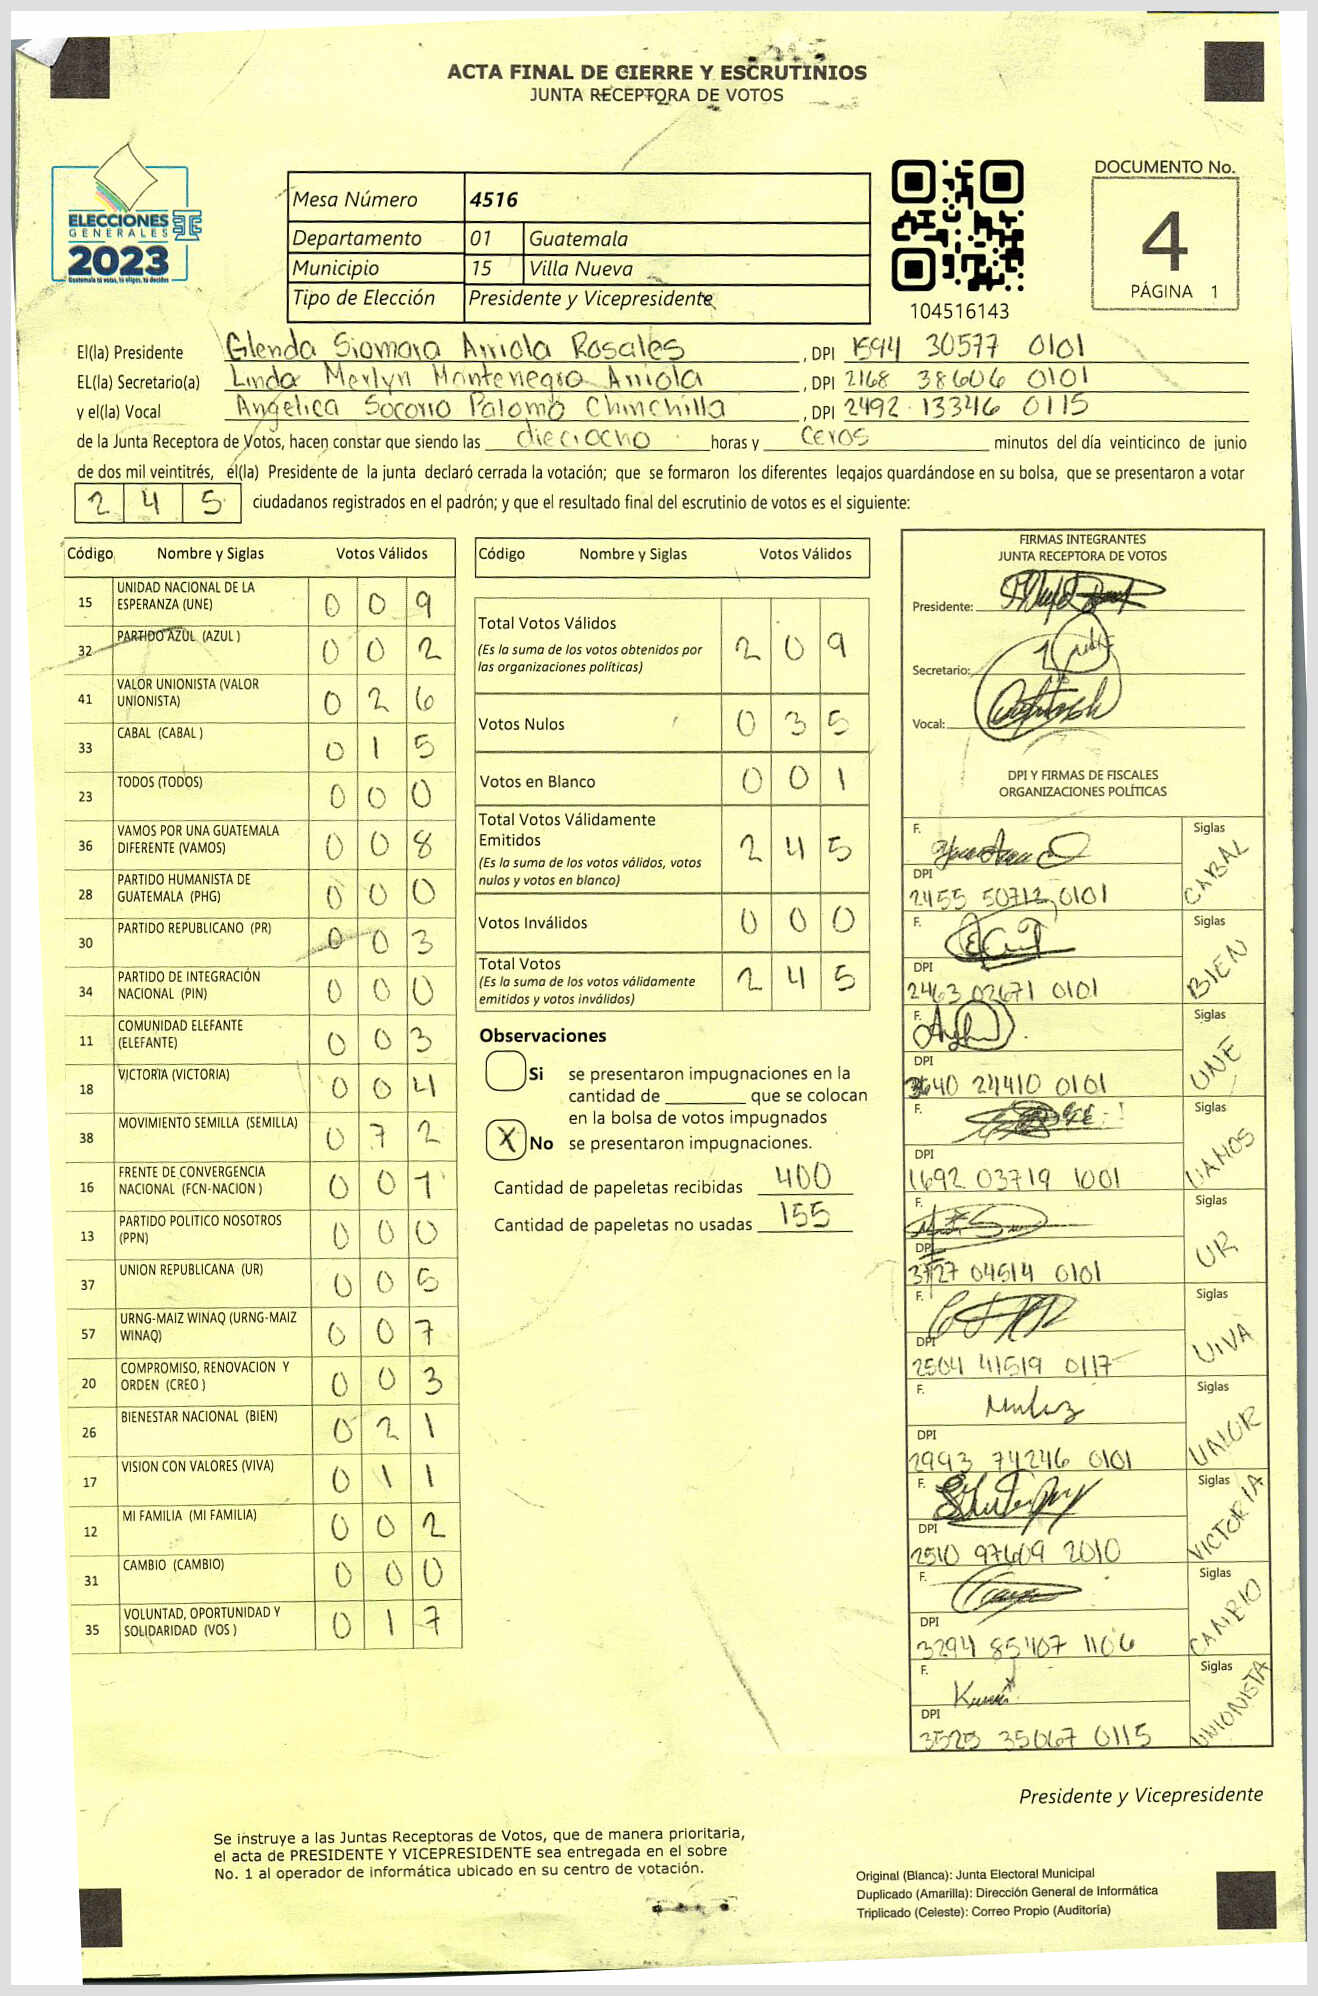 ACTA FINAL DE CIERRE Y ESCRUTINIOS
JUNTA RECEPTORA DE VOTOS
ELECCIONES
GENERALES
2023
Guatemala tú votas, tú eliges, tú decides
Mesa Número 4516
Departamento 01 Guatemala
Municipio 15 Villa Nueva
Tipo de Elección Presidente y Vicepresidente
104516143
DOCUMENTO No.
4
PÁGINA 1
El(la) Presidente Glenda Siomara Arriola Rosales, DPI 1594 30577 0101
EL(la) Secretario(a) Linda Merlyn Montenegro Arriola, DPI 2168 38606 0101
y el(la) Vocal Angelica Socorro Palomo Chinchilla, DPI 2492 13346 0115
de la Junta Receptora de Votos, hacen constar que siendo las dieciocho horas y ceros minutos del día veinticinco de junio
de dos mil veintitrés, el(la) Presidente de la junta declaró cerrada la votación; que se formaron los diferentes legajos quardándose en su bolsa, que se presentaron a votar
2 4 5 ciudadanos registrados en el padrón; y que el resultado final del escrutinio de votos es el siguiente:
Código Nombre y Siglas Votos Válidos
15 UNIDAD NACIONAL DE LA ESPERANZA (UNE) 0 0 9
32 PARTIDO AZUL (AZUL ) 0 0 2
41 VALOR UNIONISTA (VALOR UNIONISTA) 0 2 6
33 CABAL (CABAL ) 0 1 5
23 TODOS (TODOS) 0 0 0
36 VAMOS POR UNA GUATEMALA DIFERENTE (VAMOS) 0 0 8
28 PARTIDO HUMANISTA DE GUATEMALA (PHG) 0 0 0
30 PARTIDO REPUBLICANO (PR) 0 0 3
34 PARTIDO DE INTEGRACIÓN NACIONAL (PIN) 0 0 0
11 COMUNIDAD ELEFANTE (ELEFANTE) 0 0 3
18 VICTORIA (VICTORIA) 0 0 4
38 MOVIMIENTO SEMILLA (SEMILLA) 0 7 2
16 FRENTE DE CONVERGENCIA NACIONAL (FCN-NACION ) 0 0 1
13 PARTIDO POLITICO NOSOTROS (PPN) 0 0 0
37 UNION REPUBLICANA (UR) 0 0 5
57 URNG-MAIZ WINAQ (URNG-MAIZ WINAQ) 0 0 7
20 COMPROMISO, RENOVACION Y ORDEN (CREO ) 0 0 3
26 BIENESTAR NACIONAL (BIEN) 0 2 1
17 VISION CON VALORES (VIVA) 0 1 1
12 MI FAMILIA (MI FAMILIA) 0 0 2
31 CAMBIO (CAMBIO) 0 0 0
35 VOLUNTAD, OPORTUNIDAD Y SOLIDARIDAD (VOS ) 0 1 7
Código Nombre y Siglas Votos Válidos
Total Votos Válidos 2 0 9
(Es la suma de los votos obtenidos por
las organizaciones políticas)
Votos Nulos 0 3 5
Votos en Blanco 0 0 1
Total Votos Válidamente
Emitidos 2 4 5
(Es la suma de los votos válidos, votos
nulos y votos en blanco)
Votos Inválidos 0 0 0
Total Votos 2 4 5
(Es la suma de los votos válidamente
emitidos y votos inválidos)
Observaciones
Si se presentaron impugnaciones en la
cantidad de ________ que se colocan
en la bolsa de votos impugnados
X No se presentaron impugnaciones.
Cantidad de papeletas recibidas 400
Cantidad de papeletas no usadas 155
FIRMAS INTEGRANTES
JUNTA RECEPTORA DE VOTOS
Presidente:
Secretario:
Vocal:
DPI Y FIRMAS DE FISCALES
ORGANIZACIONES POLÍTICAS
F. Siglas CABAL
DPI
2455 50712 0101
F. Siglas BIEN
DPI
2463 02671 0101
F. Siglas UNE
DPI
3640 24410 0101
F. Siglas VAMOS
DPI
1692 03719 1001
F. Siglas UR
DPI
3727 04514 0101
F. Siglas VIVA
DPI
2504 41519 0117
F. Siglas VALOR
DPI
2993 74246 0101
F. Siglas VICTORIA
DPI
2510 97609 2010
F. Siglas CAMBIO
DPI
3294 85407 1106
F. Siglas UNIONISTA
DPI
3525 35067 0115
Presidente y Vicepresidente
Se instruye a las Juntas Receptoras de Votos, que de manera prioritaria,
el acta de PRESIDENTE Y VICEPRESIDENTE sea entregada en el sobre
No. 1 al operador de informática ubicado en su centro de votación.
Original (Blanca): Junta Electoral Municipal
Duplicado (Amarilla): Dirección General de Informática
Triplicado (Celeste): Correo Propio (Auditoría)